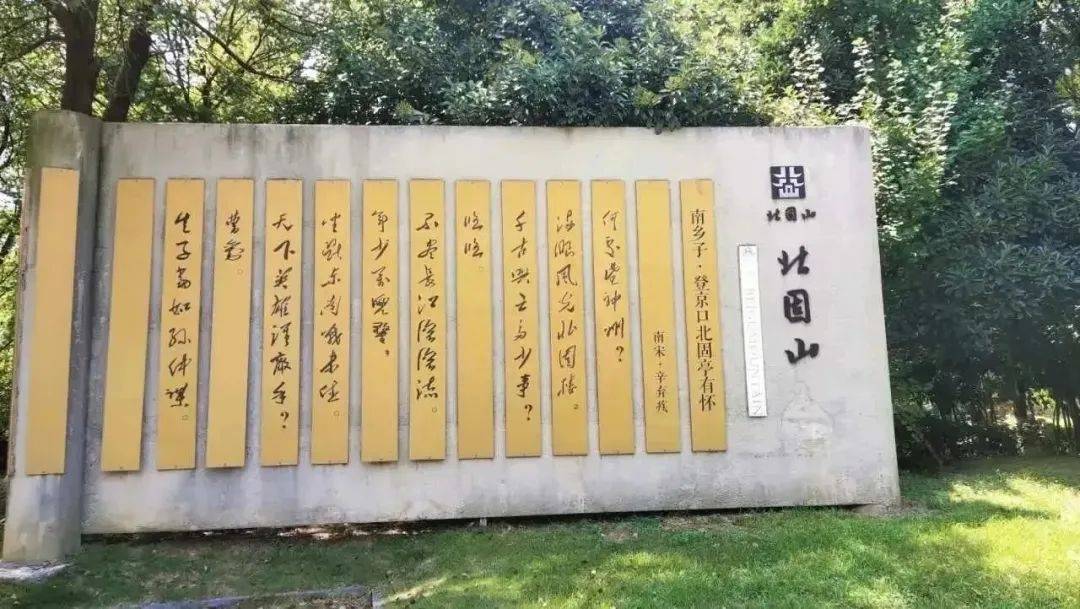 北固山
北固山
BEIGU MOUNTAIN
南乡子·登京口北固亭有怀
南宋·辛弃疾
何处望神州？
满眼风光北固楼。
千古兴亡多少事？
悠悠。
不尽长江滚滚流。
年少万兜鍪。
坐断东南战未休。
天下英雄谁敌手？
曹刘。
生子当如孙仲谋。